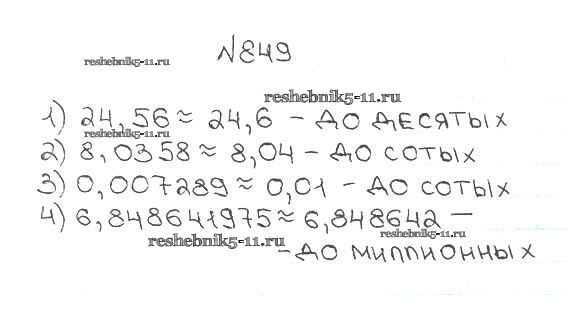 №849
reshebnik5-11.ru
reshebnik5-11.ru
1) 24,56 ≈ 24,6 – до десятых
reshebnik5-11.ru
2) 8,0358 ≈ 8,04 – до сотых
3) 0,007289 ≈ 0,01 – до сотых
4) 6,848641975 ≈ 6,848642 –
reshebnik5-11.ru
reshebnik5-11.ru
– до миллионных